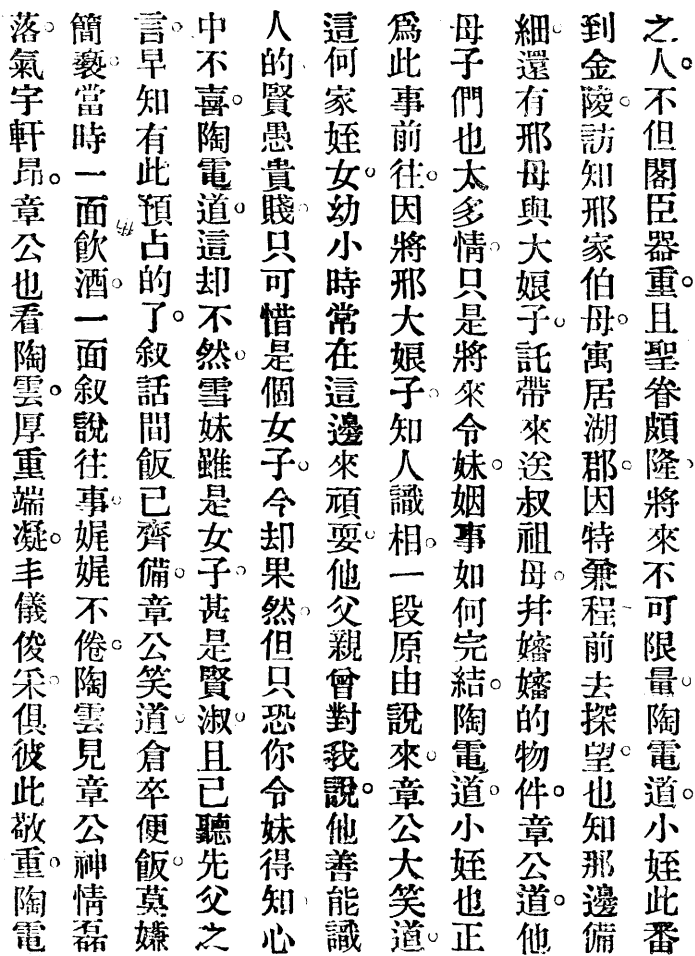 之人不但閣臣器重且聖眷頗隆將來不可限量陶電道小姪此番
到金陵訪知邢家伯母寓居湖郡因特兼程前去探望也知那邊備
細還有邢母與大娘子託帶來送叔祖母幷嬸嬸的物件章公道他
母子們也太多情只是將來令妹姻事如何完結陶電道小姪也正
爲此事前往因將邢大娘子知人識相一段原由說來章公大笑道
這何家姪女幼小時常在這邊來頑耍他父親曾對我說他善能識
人的賢愚貴賤只可惜是個女子今却果然但只恐你令妹得知心
中不喜陶電道這却不然雪妹雖是女子甚是賢淑且已聽先父之
言早知有此預占的了叙話間飯已齊備章公笑道倉卒便飯莫嫌
簡褻當時一面飮酒一面叙說往事娓娓不倦陶雲見章公神情磊
落氣宇軒昂章公也看陶雲厚重端凝丰儀俊采俱彼此敬重陶電